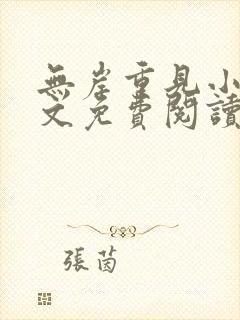 無岸重見小
文免費閱讀
張茵